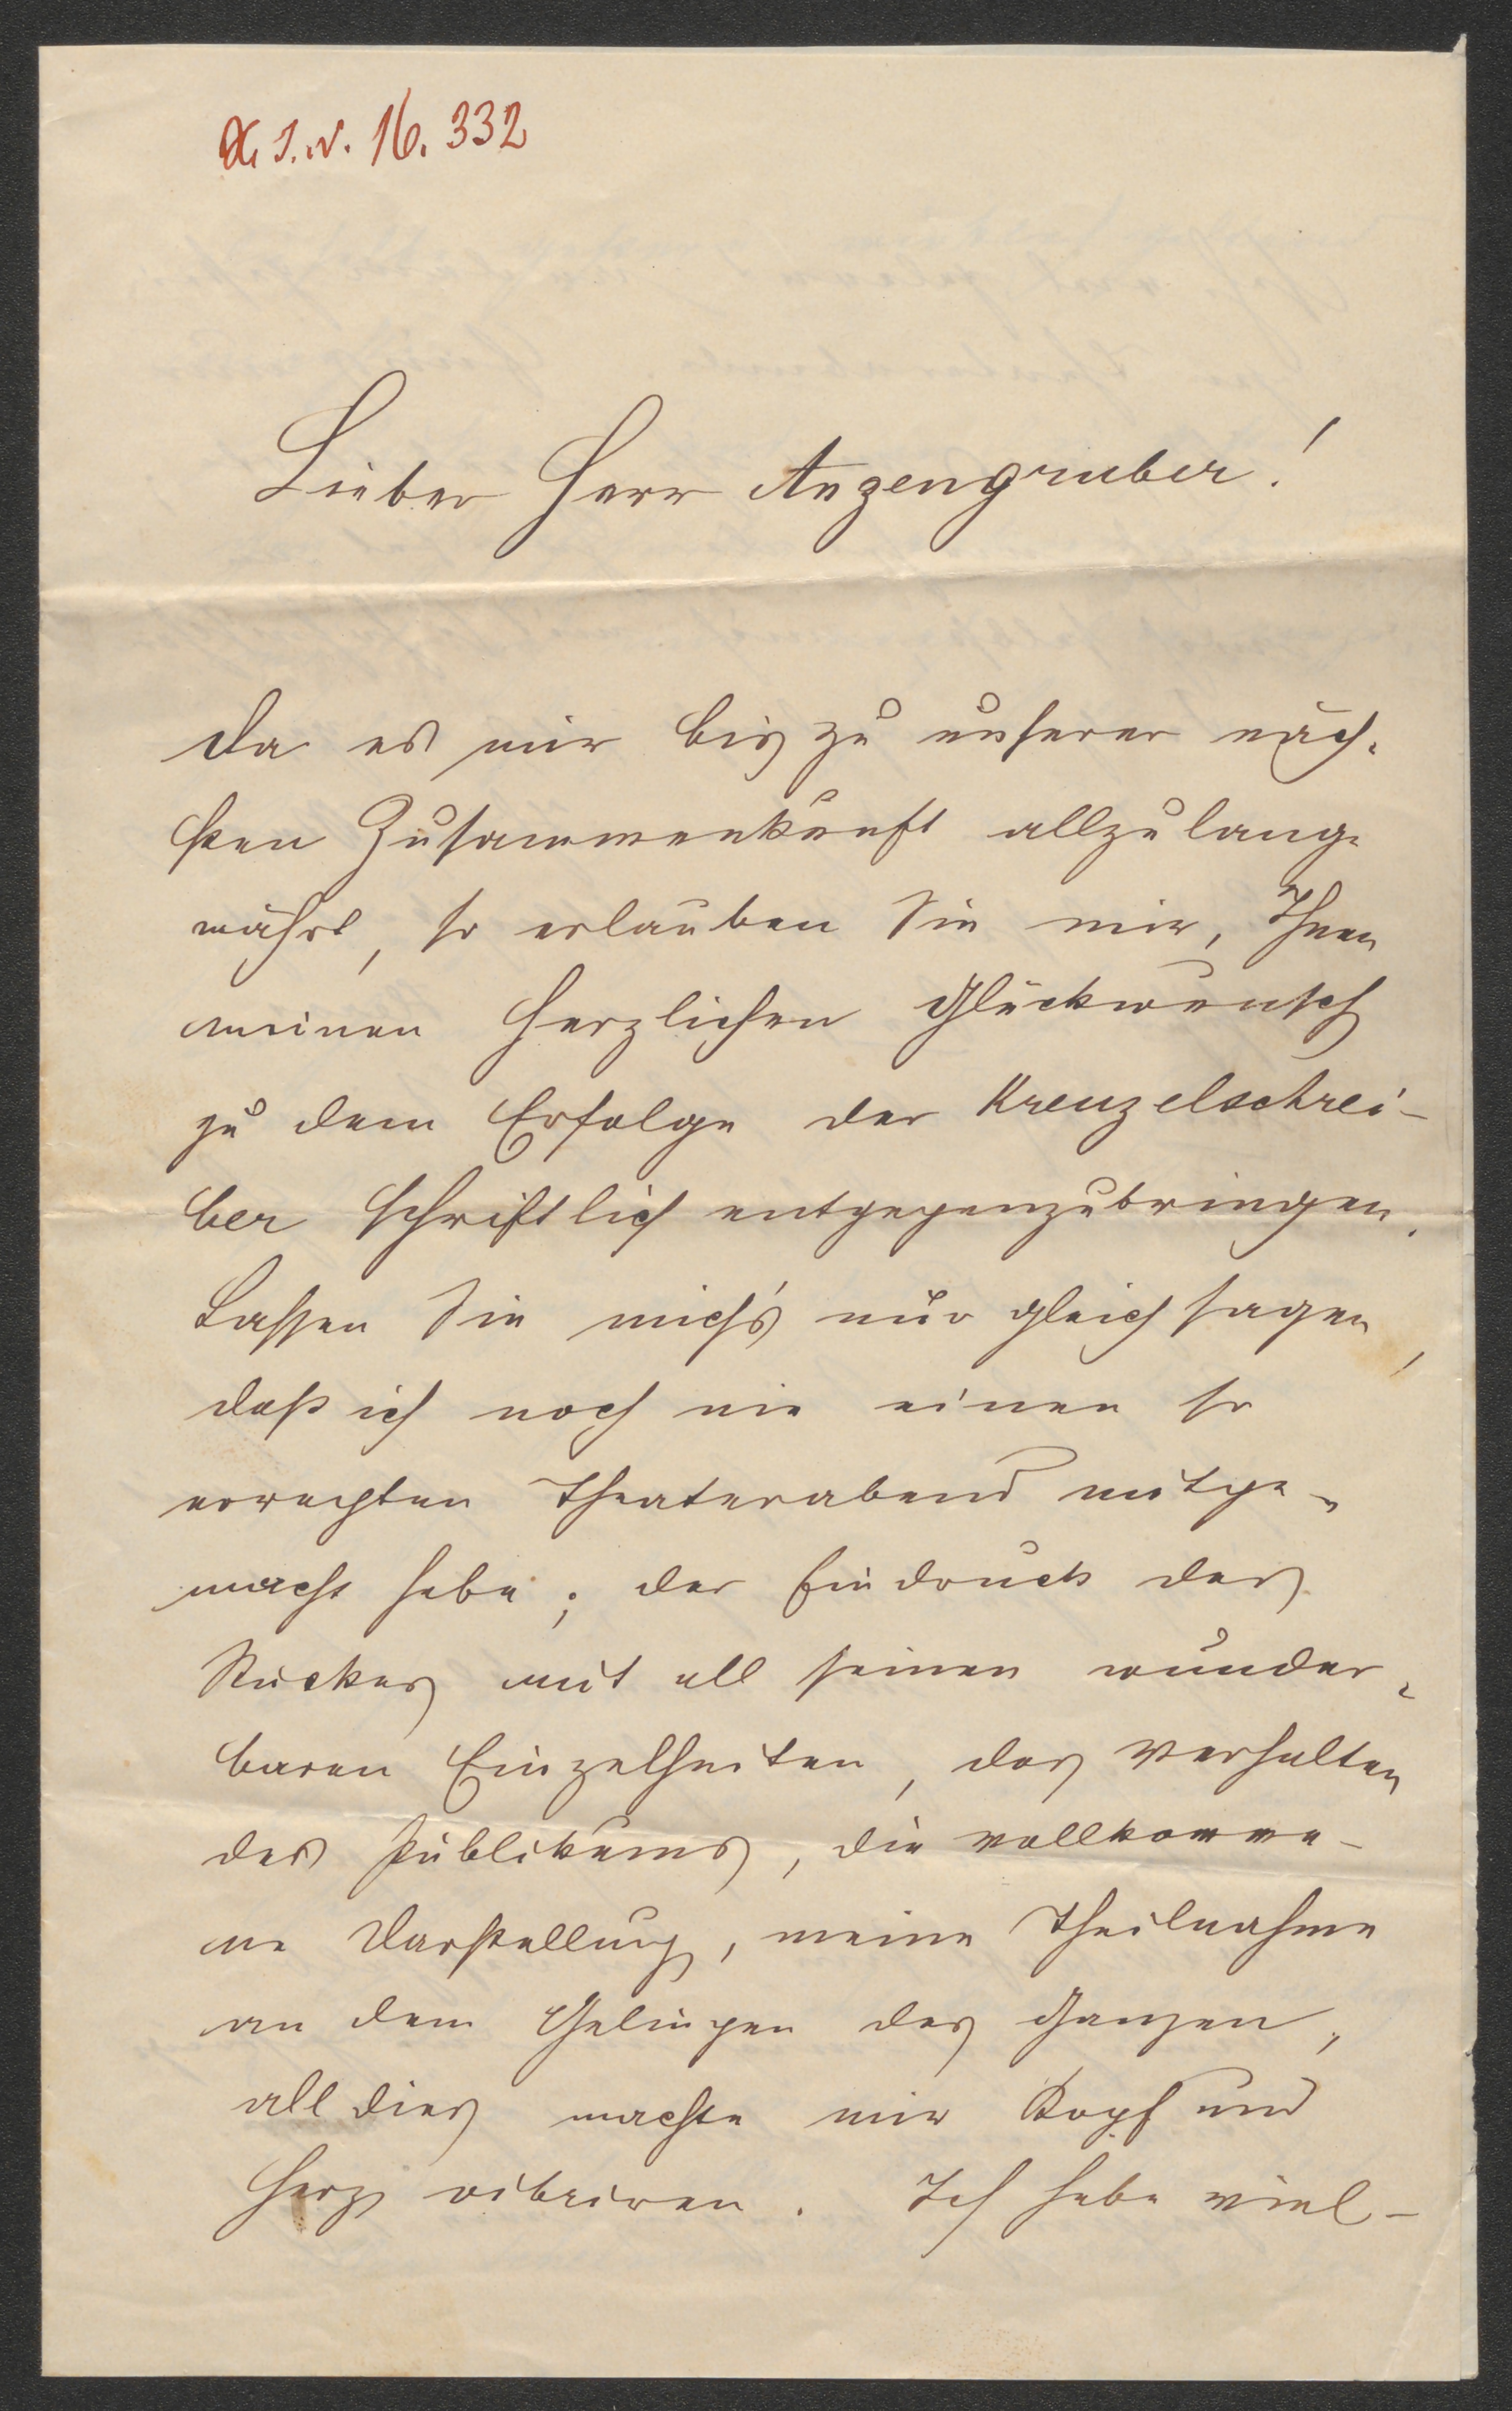 I.N. 16.332
Lieber Herr Anzengruber!
Da es mir bis zu unserer näch-
sten Zusammenkunft allzulange
währt, so erlauben Sie mir, Ihnen
meinen herzlichen Glückwunsch
zu dem Erfolge der Kreuzelschrei-
ber schriftlich entgegenzubringen.
Lassen Sie mich's nur gleich sagen,
daß ich noch nie einen so
erregten Theaterabend mitge-
macht habe; der Eindruck des
Stückes mit all seinen wunder-
baren Einzelheiten, das Verhalten
des Publikums, die vollkomme-
ne Darstellung, meine Theilnahme
an dem Gelingen des Ganzen,
all dies machte mir Kopf und
Herz vibriren. Ich habe viel-